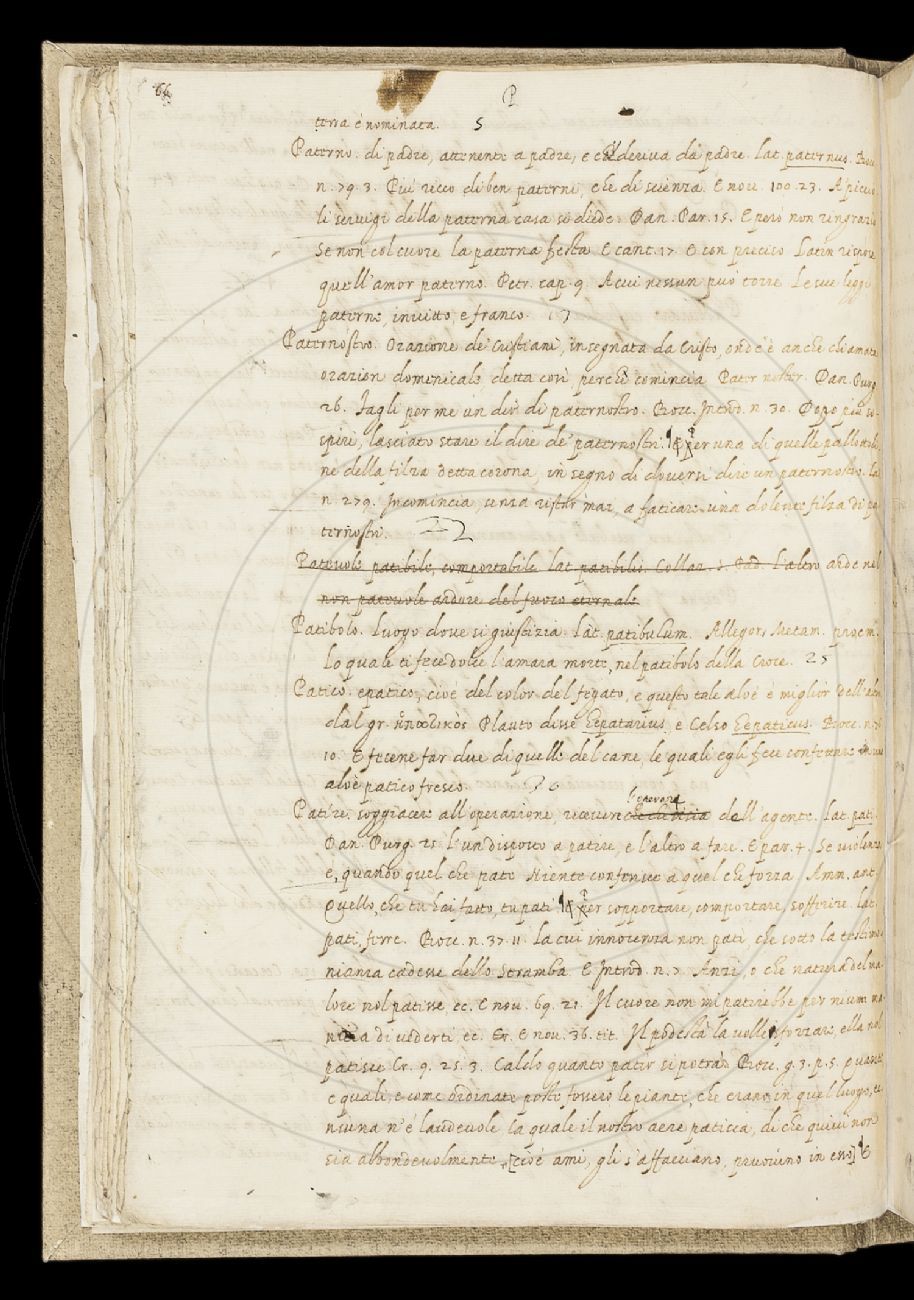 66
P
terra è nominata. 5
Paterno. di padre, attenente a padre, e che deriva da padre. Lat. paternus. Bocc.
n. 79. 3. Piú ricco di ben paterni, che di scienza. E nov. 100. 23. A piccio
li servigi della paterna casa si diede. Dan. Par. 15. E però non ringrazio
Se non col cuore la paterna festa E cant. 17. E con preciso Latin rispose
quell'amor paterno. Petr. cap. 9. A cui nessun può torre Le sue leggi
paterne, invitto, e franco.
Paternostro. Orazione de' Cristiani, insegnata da Cristo, ond'è anche chiamata
orazion domenicale detta così, perchè comincia Pater noster. Dan. Purg.
26. Fagli per me un dir di paternostro. Bocc. Introd. n. 30. Dopo più so-
spiri, lasciato stare il dire de' paternostri. per una di quelle pallottoli
ne della filza detta corona in segno di doversi dire un paternostro. La
n. 279. Incomincia, senza ristar mai, a faticare una dolente filza di pa
ternostri. 22
Patevole patibile, comportabile lat. patibilis. Collaz. S. Pad. L'altro arde nel
non patevole ardore del fuoco eternale
Patibolo. Luogo dove si giustizia. Lat. patibulum. Allegor. Metam. proem.
Lo quale ti fece dolce l'amara morte, nel patibolo della Croce. 25
Patico. epatico, cioè del color del fegato, e questo tale aloè è miglior dell'altro
dal gr. ἡπατικός Plauto disse Hepatarius, e Celso Hepaticus. Bocc. n. 76
10. E fecene far due di quelle del cane, le quali egli fece confettare in uno
aloè patico fresco. 26
Patire. soggiacere all'operazione, ricevere l'operaz. dell'agente. Lat. pati.
Dan. Purg. 25. L'un disposto a patire, e l'altro a fare. E par. 4. Se violenza
è, quando quel che pate Niente conferisce a quel che forza Amm. ant.
Quello, che tu hai fatto, tu pati per sopportare, comportare, sofferire. Lat.
pati, ferre. Bocc. n. 37. 11. La cui innocenza non patì, che sotto la testimo
nianza cadesse dello Stramba. E Introd. n. 7. Anzi, o che natura del ma
lore nol patisse, ec. E nov. 69. 21. Il cuore non mi patirebbe per niuna ma
niera di vederti, ec. E nov. 36. tit. Il podestà la vuole sforzare, ella nol
patisce Cr. 9. 25. 3. Caldo quanto patir si potrà Bocc. g. 3. p. 5. Quante
e quali, e come ordinate poste fossero le piante, che erano in quel luogo,
niuna n'è laudevole la quale il nostro aere patisca, di che quivi non
sia abbondevolmente [cioè ami, gli s'affacciano, pruovino in esso] E